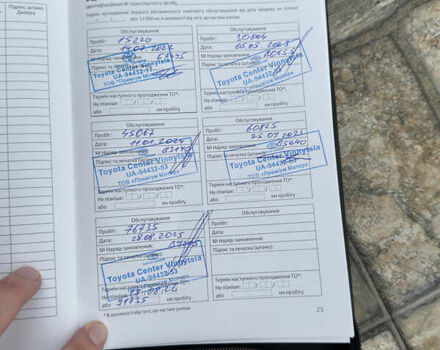 Підпис, штамп
Дилера
ідентифікаційний № транспортного засобу
Термін проходження першого регламентного технічного обслуговування від дати продажу не пізніше
або 15 000 км, в залежності від того, що настане раніше
Обслуговування
Пробіг: 15220
Дата:
№ Наряд-замовлення:
Підпис та
Toyota Center Vinnytsia
UA-94432-17
ТОВ "Преміум Мотор"
Термін наступного проходження ТО*:
Не пізніше:
або км пробігу
Обслуговування
Пробіг: 30004
Дата: 05.05.2023
№ Наряд-замовлення:
Підпис та печатка
Toyota Center Vinnytsia
UA-94432
ТОВ «Преміум Мотор»
Термін наступного проходження ТО*:
Не пізніше:
або км пробігу
Обслуговування
Пробіг: 45067
Дата:
№ Наряд-замовлення:
Підпис та печатка
Toyota Center Vinnytsia
UA-94432-53
ТОВ «Преміум Мотор»
Не пізніше:
або км пробігу
Обслуговування
Пробіг: 60825
Дата: 25.04.2025
№ Наряд-замовлення:
Підпис та печатка (штамп):
Toyota Center Vinnytsia
UA-94432-53
ТОВ «Преміум Мотор»
Не пізніше:
або км пробігу
Обслуговування
Пробіг: 76735
Дата: 28.08.2025
№ Наряд-замовлення:
Підпис та печатка (штамп):
Toyota Center Vinnytsia
UA-94432-53
Термін
Не пізніше: 28.08.26
або 91735 км пробігу
Обслуговування
Пробіг:
Дата:
№ Наряд-замовлення:
Підпис та печатка (штамп):
Термін наступного проходження ТО*:
Не пізніше:
або км пробігу
* В залежності від того, що настане раніше
25